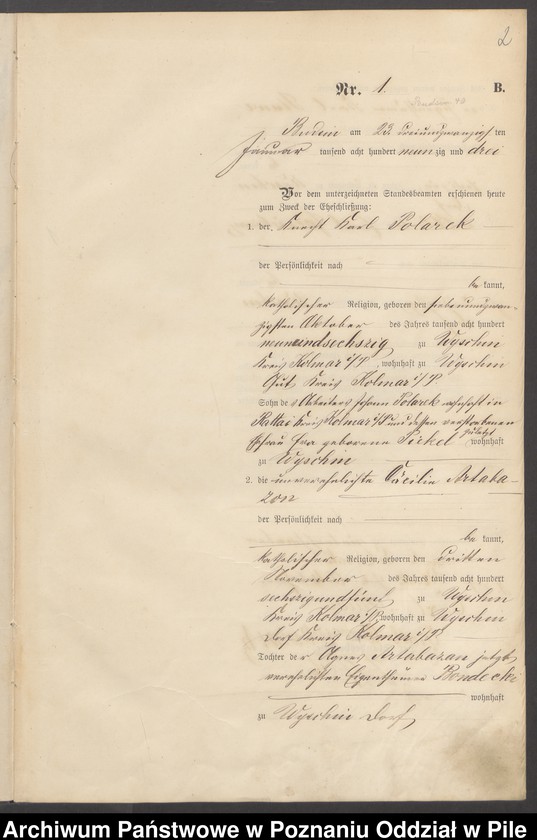 2
Nr. 1. B.
Budsin am 23. dreiundzwanzigsten
Januar tausend acht hundert neunzig und drei
Vor dem unterzeichneten Standesbeamten erschienen heute
zum Zweck der Eheschließung:
1. der Knecht Karl Polarek
der Persönlichkeit nach
be kannt,
katholischer Religion, geboren den siebenundzwan-
zigsten Oktober des Jahres tausend acht hundert
neunundsechszig zu Wyschin
Kreis Kolmar i/P, wohnhaft zu Wyschin
Gut, Kreis Kolmar i/P
Sohn des Arbeiters Johann Polarek wohnhaft in
Rattai Kreis Kolmar i/P und dessen verstorbenen
Ehefrau Eva geborene zuletzt wohnhaft
zu Wyschin
2. die unverehelichte Cäcilie Artaba-
zon
der Persönlichkeit nach
be kannt,
katholischer Religion, geboren den dritten
November des Jahres tausend acht hundert
sechszigundfünf zu Wyschin
Kreis Kolmar i/P, wohnhaft zu Wyschin
Dorf Kreis Kolmar i/P
Tochter der Agnes Artabazon jetzt
verehelichten Eigenthümer
wohnhaft
zu Wyschin Dorf
Archiwum Państwowe w Poznaniu Oddział w Pile